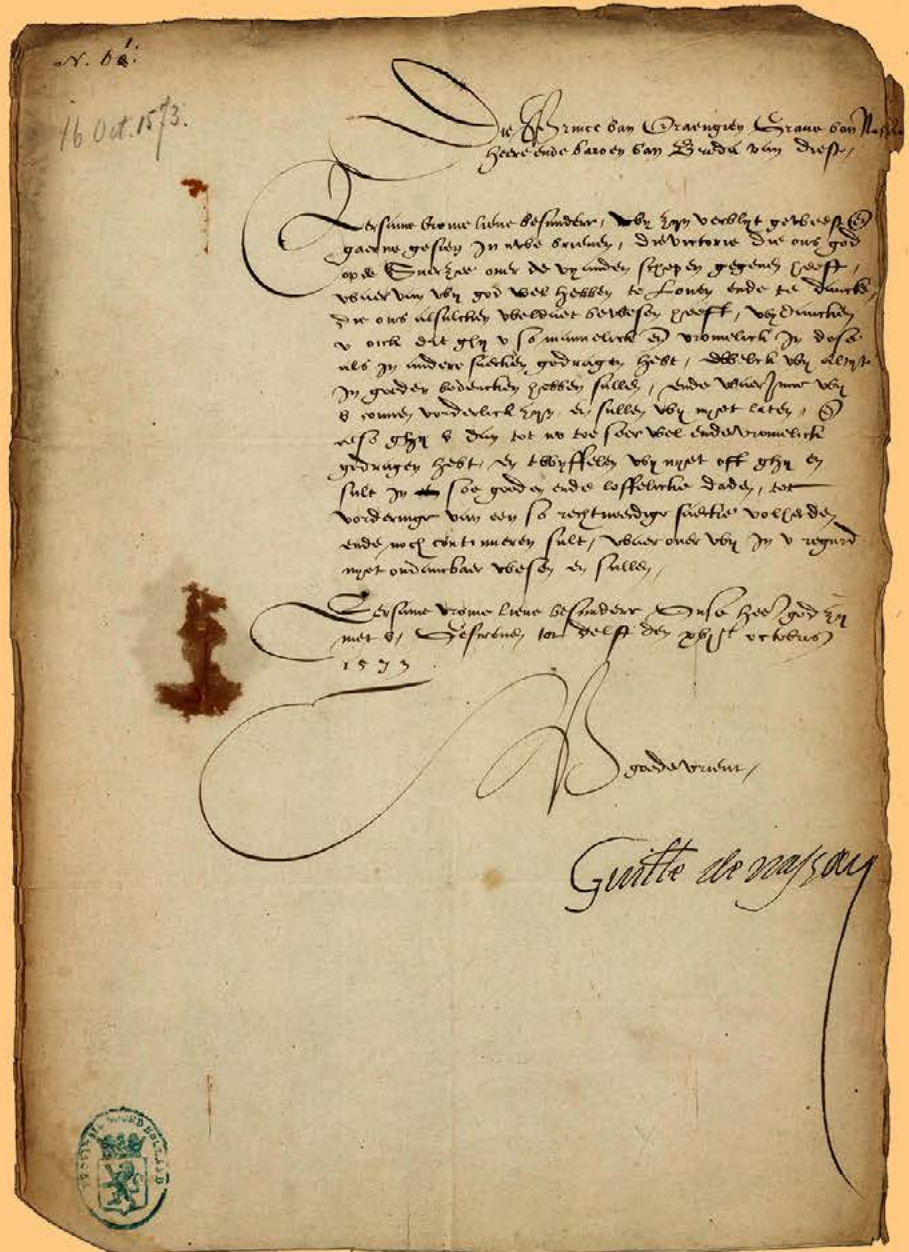 N. 62.
16 Oct. 1573.
Die Prince van Oraengien Grave van Nassau
heere ende baroen van Breda van Diest,
Eersame vrome lieve besundere, wy zyn verblyt geweest en
gaerne gesien in uwe brieven, die victorie die ons god
op de Suerzee over de vyanden schepen gegeven heeft,
waer van wy god wel hebben te loven ende te dancken,
die ons alsulcken weldaet bewesen heeft, wy dancken
u oick dat ghy u so mannelick en vromelick in dese
als in andere saecken gedragen hebt, dwelck wy altyt
in goeden bedencken hebben sullen, ende waer inne wy
u connen vorderlick zyn, en sullen wy nyet laten,
ghy u dan tot nu toe seer wel ende vromelick
gedragen hebt, en twyffelen wy nyet off ghy en
sult in soe goeden ende loffelicke daden, tot
vorderinge van een so rechtveerdige saecke volherden
ende noch continueren sult, waer over wy in u regard
nyet ondanckbaer wesen en sullen,
Eersame vrome lieve besundere Onse heer god zy
met u, Gescreven tot Delft den xvjen octobris
1573
U goede vrient,
Guille de nassau
PROVINCIE NOORD HOLLAND